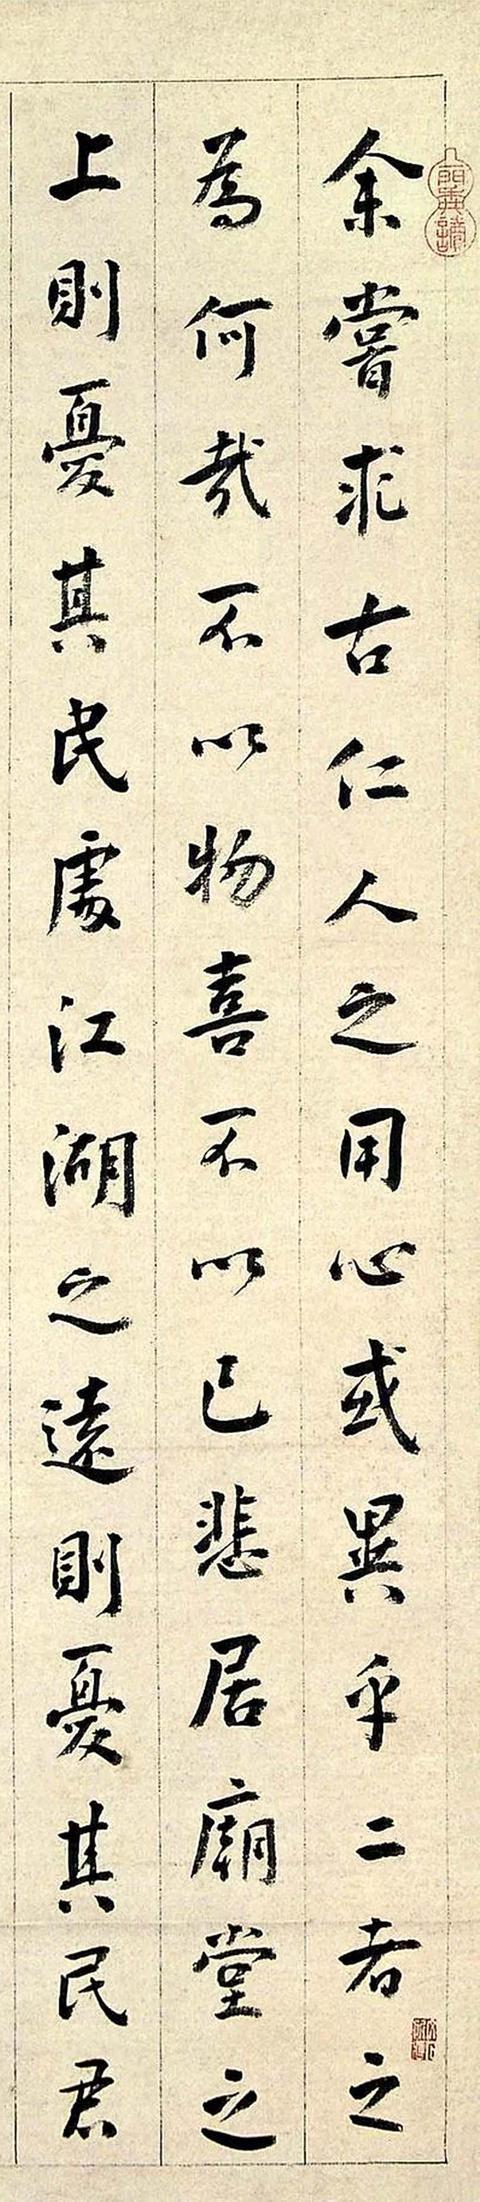 余嘗求古仁人之用心或異乎二者之
為何哉不以物喜不以已悲居廟堂之
上則憂其民處江湖之遠則憂其民君